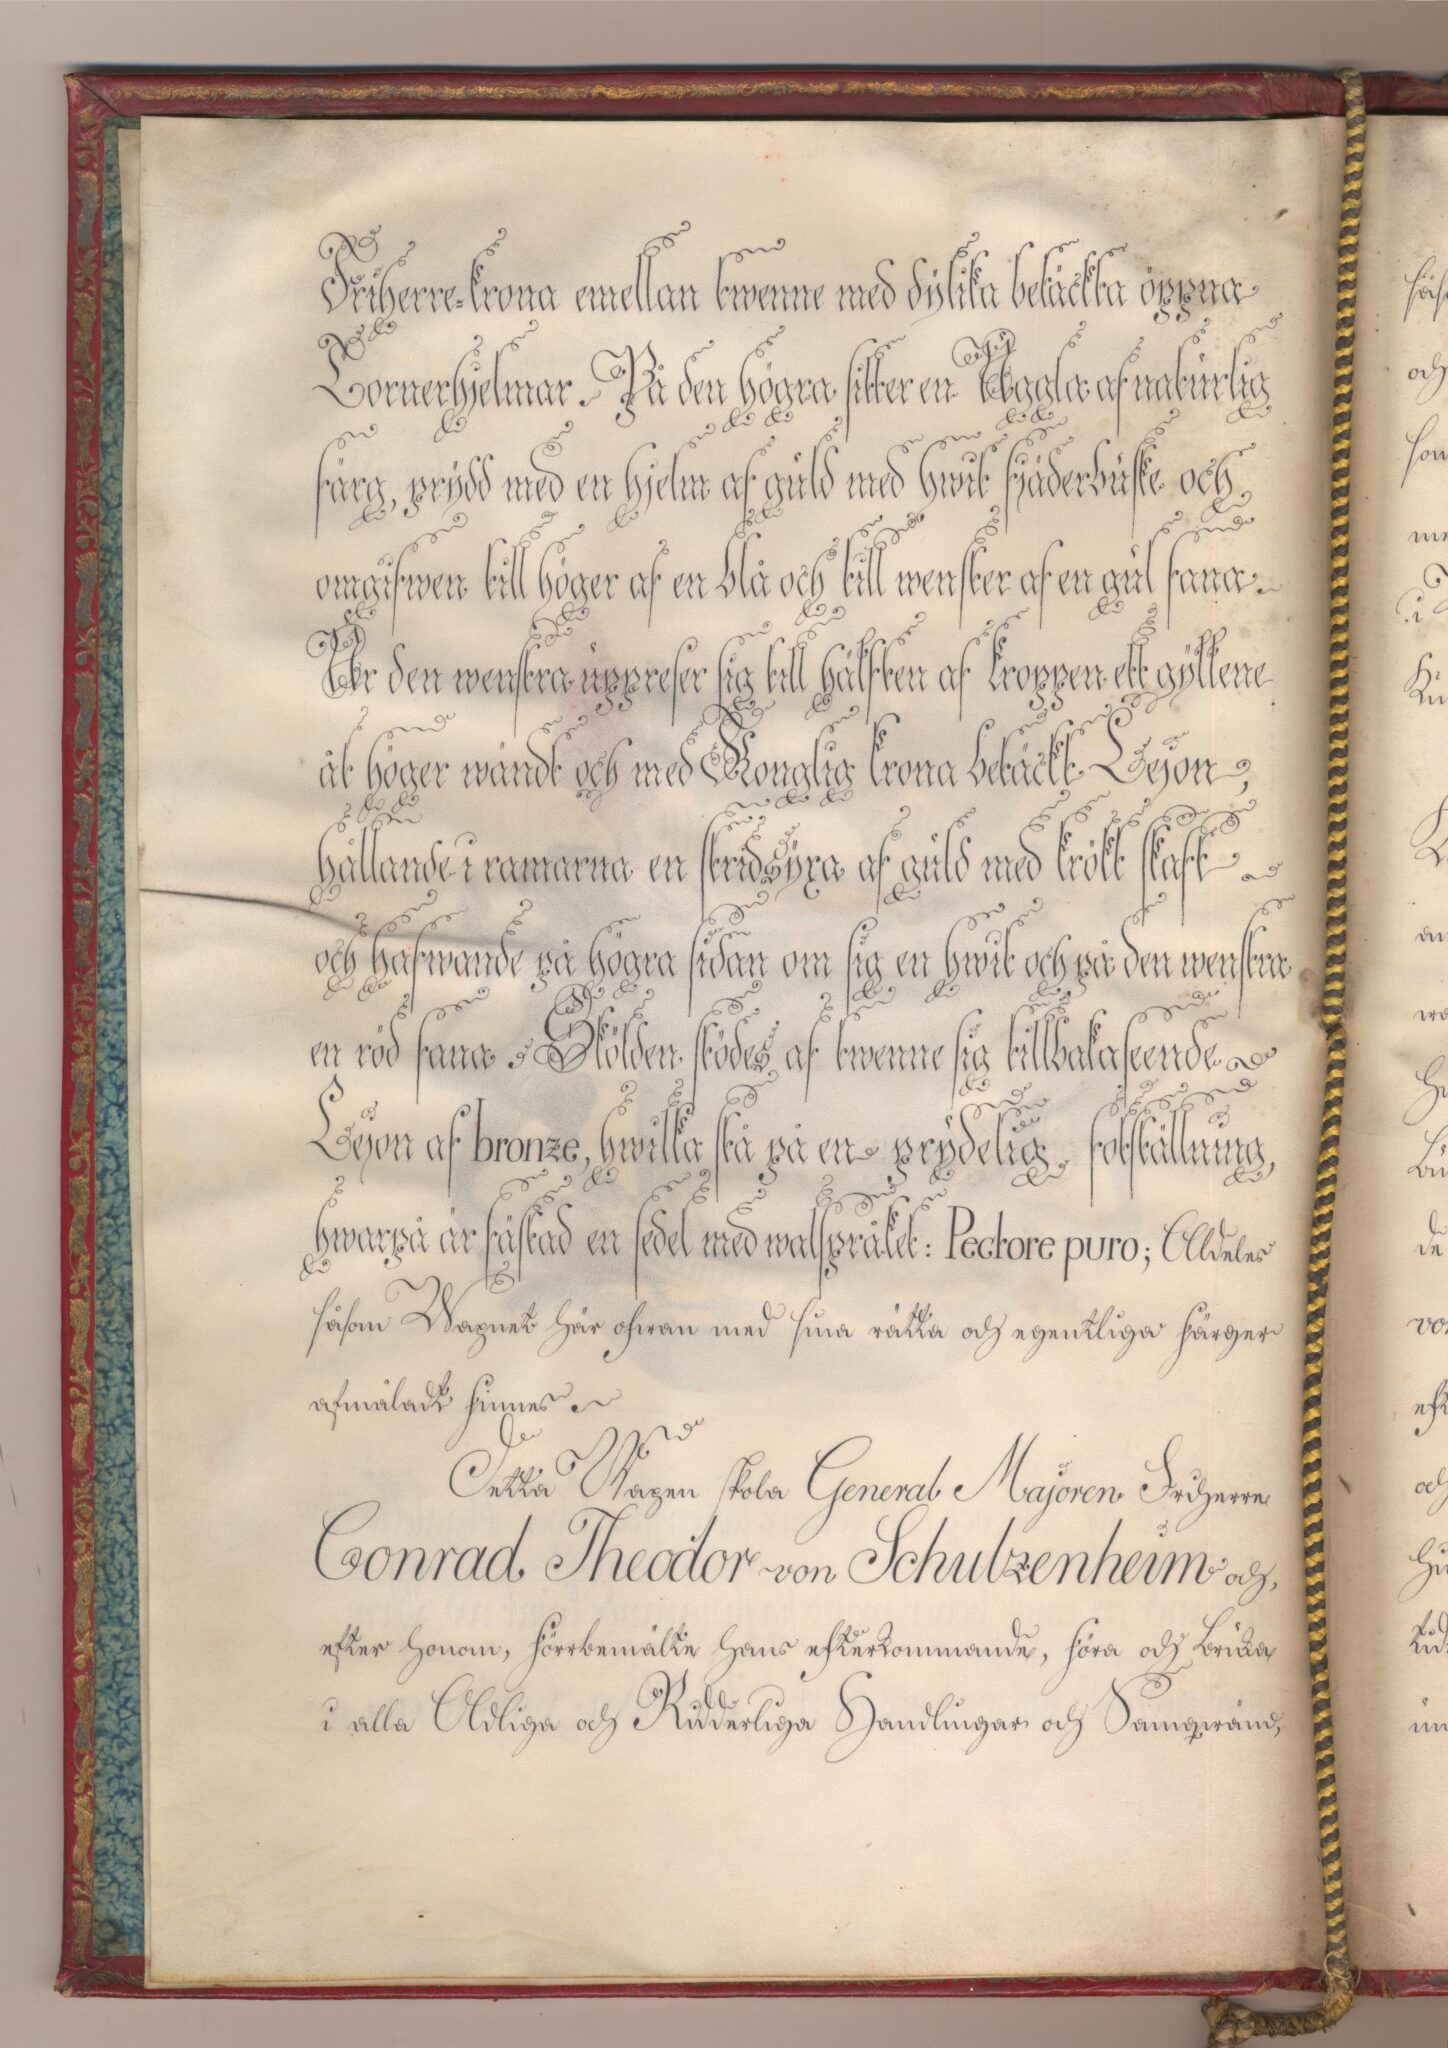 Friherre-krona emellan twenne med dylika betäckta öppna
Tornerhjelmar. På den högra sitter en Uggla af naturlig
färg, prydd med en hjelm af guld med hwit fjäderbuske och
omgifwen till höger af en blå och till wenster af en gul fana.
Ur den wenstra uppreser sig till hälften af kroppen ett gyllene
åt höger wändt och med Konglig krona betäckt Lejon,
hållande i ramarna en stridsyxa af guld med krökt skaft
och hafwande på högra sidan om sig en hwit och på den wenstra
en röd fana. Skölden stödes af twenne sig tillbakaseende
Lejon af bronze, hwilka stå på en prydelig fotställning,
hwarpå är fästad en sedel med walspråket: Pectore puro; Alldeles
såsom Wapnet här ofwan med sina rätta och egentliga färger
afmåladt finnes.
Detta Wapen skola General Majoren Friherre
Conrad Theodor von Schulzenheim och,
efter honom, förrbemälte hans efterkommande, föra och bruka
i alla Adliga och Ridderliga Handlingar och Samqwäm,
såso
och
som
me
i
an
wa
de
wor
eft
och
un